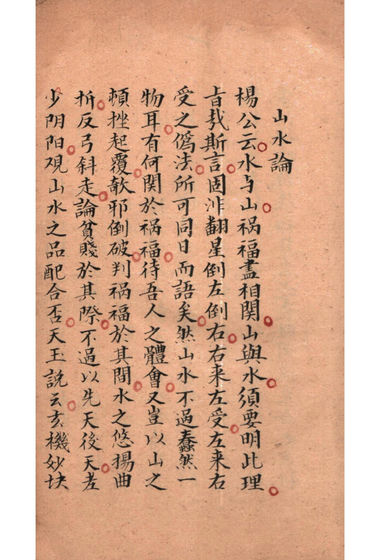 山水論
楊公云水与山祸福盡相関山與水須要明此理
旨㢤斯言固泮翻星倒左倒右右来左受左来右
受之偽法所可同日而語矣然山水不過蠢然一
物耳有何関於祸福待吾人之體會又豈以山之
頓挫起覆欹邪倒破判祸福於其間水之悠揚曲
折反弓斜走論貧賤於其際不過以先天後天老
少阴阳观山水之品配合否天玉説云玄機妙块